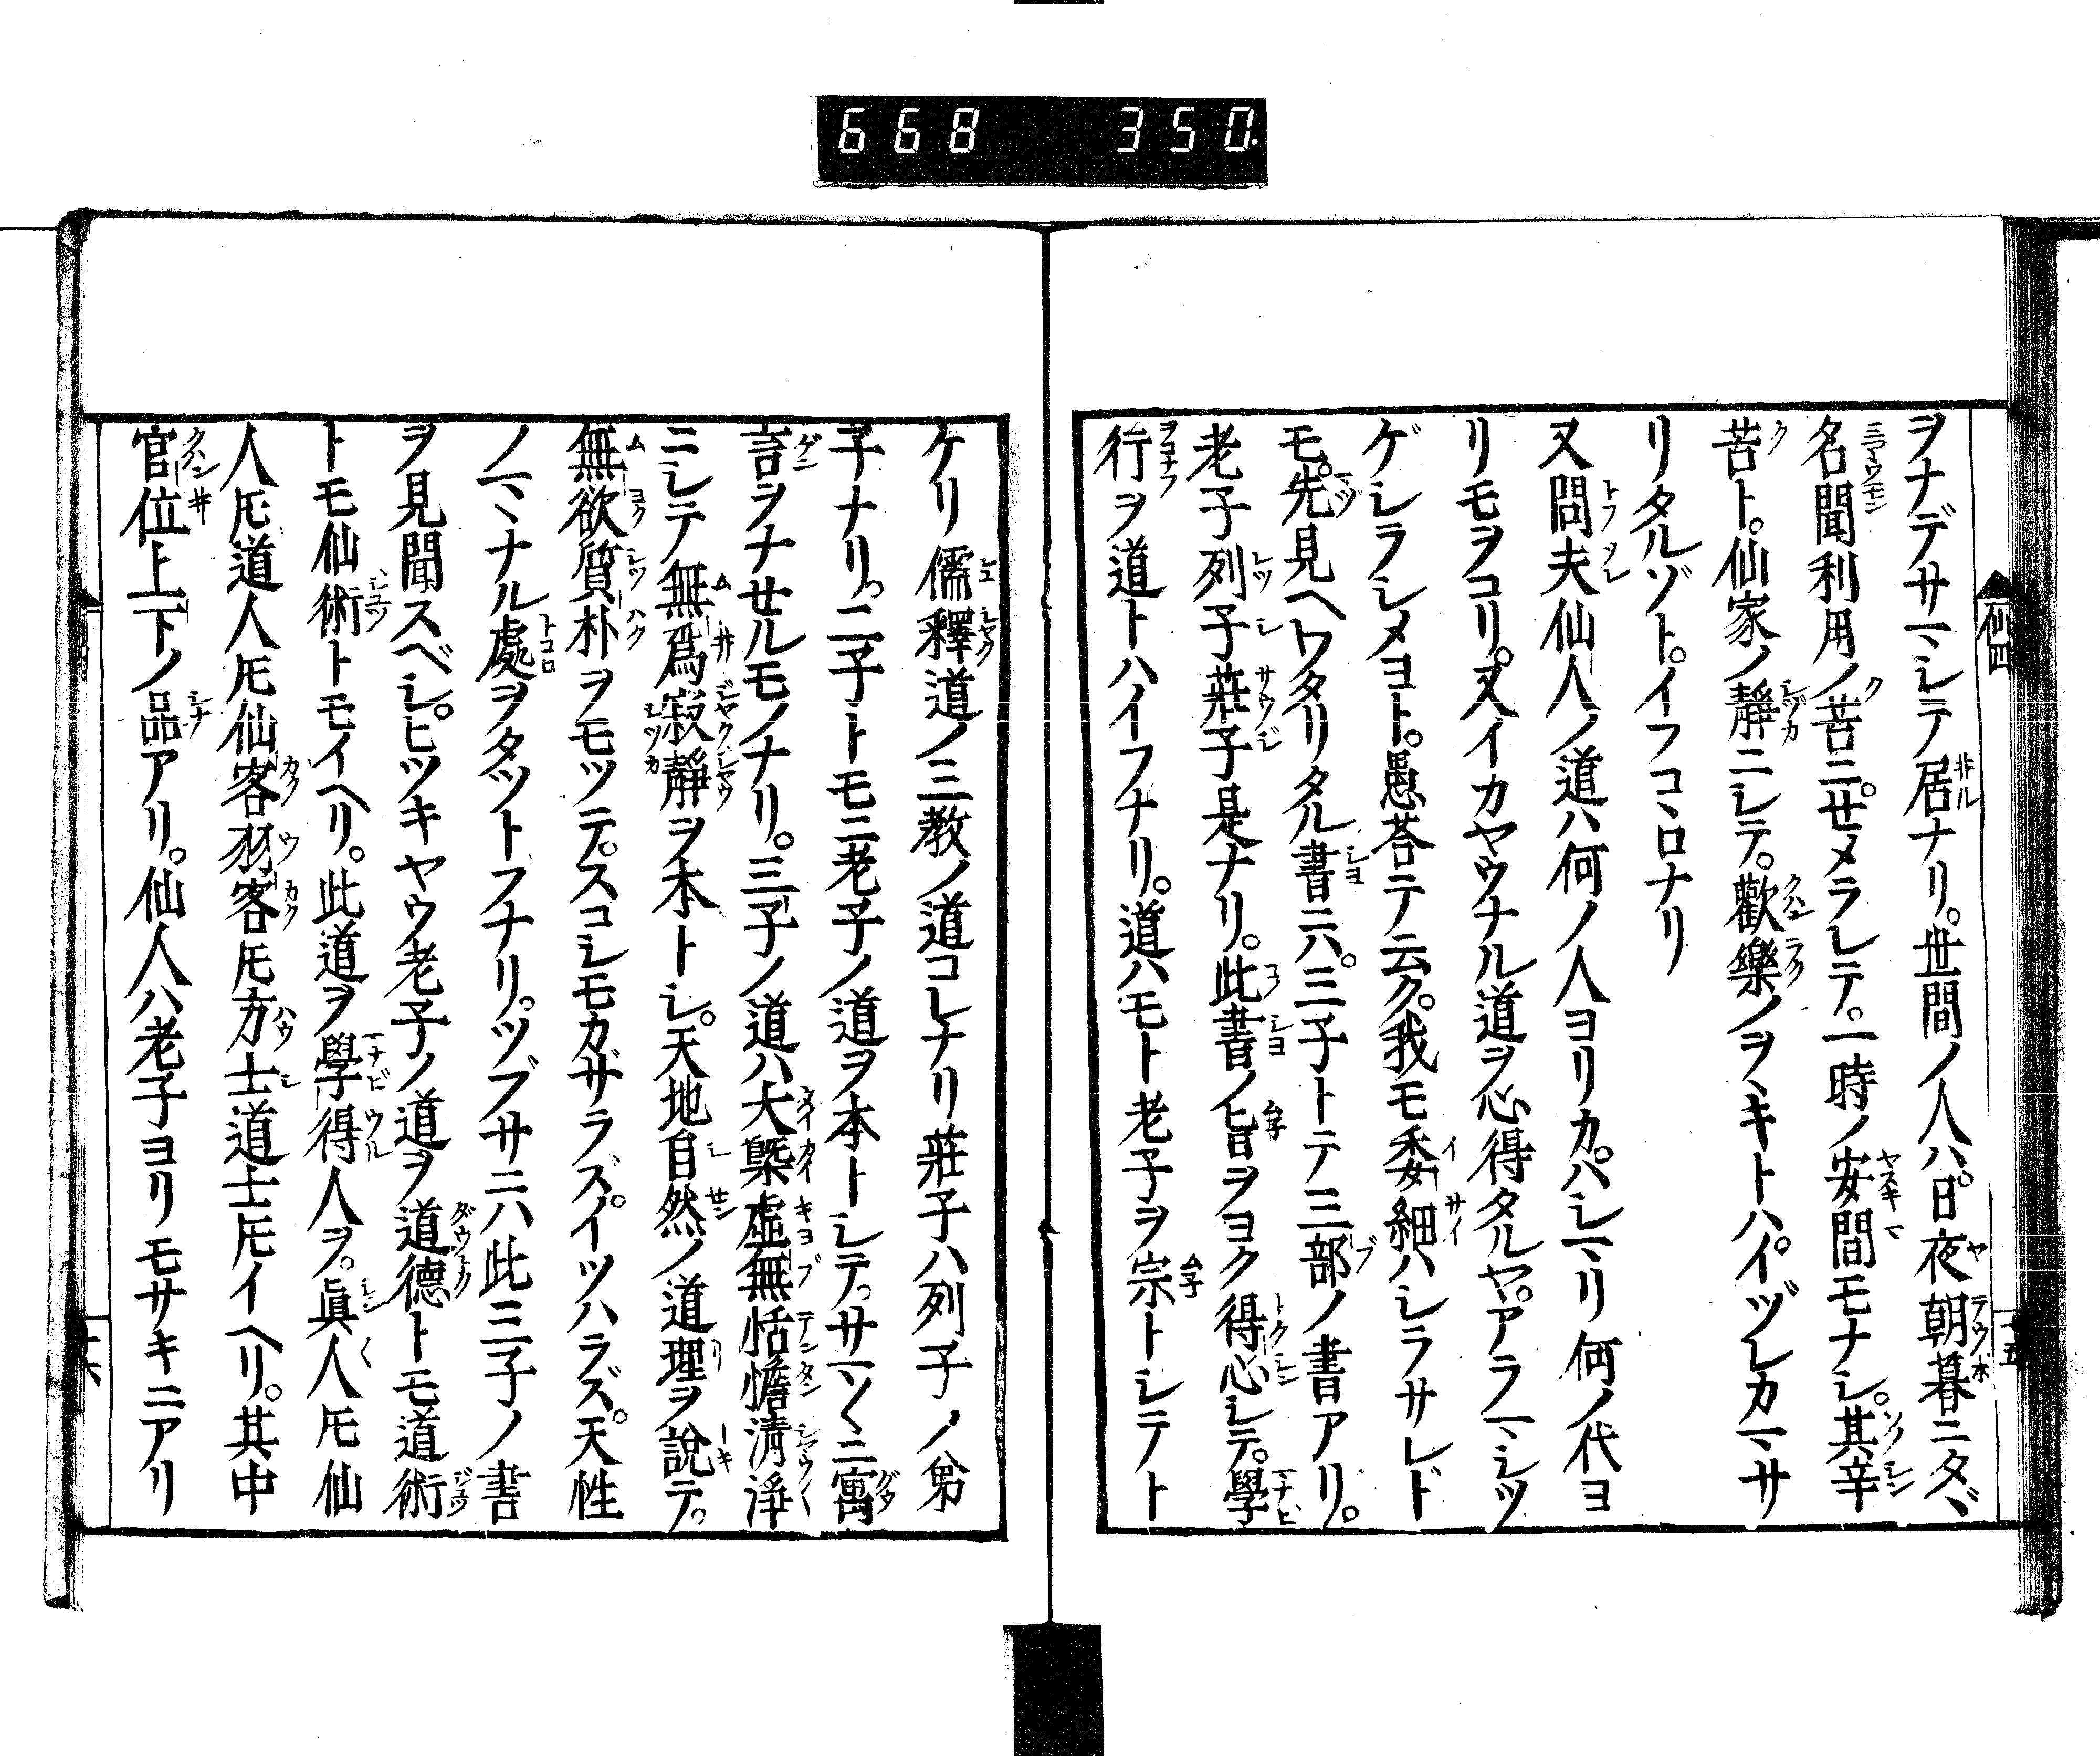 668 350
ヲナデサマシテ居ナリ。世間ノ人ハ。日夜朝暮ニタヾ
名聞利用ノ苦ニ。せメラレテ。一時ノ安間モナシ。其辛
苦ト。仙家ノ靜ニシテ。歡樂ノヲヽキトハ。イヅレカマサ
リタルゾト。イフコヽロナリ
又問夫仙人ノ道ハ何ノ人ヨリカ。ハシマリ何ノ代ヨ
リモヲコリ。又イカヤウナル道ヲ心得タルヤ。アラマシツ
ゲシラシメヨト。愚荅テ云ク。我モ委細ハシラサレド
モ。先見ヘワタリタル書ニハ。三子トテ三部ノ書アリ。
老子列子莊子是ナリ。此書ノ旨ヲヨク得心シテ。學
行ヲ道トハイフナリ。道ハモト老子ヲ宗トシテト
仙四
十五
ケリ儒釋道ノ三教ノ道コレナリ莊子ハ列子ノ弟
子ナリ。二子トモニ老子ノ道ヲ本トシテ。サマ〳〵ニ寓
言ヲナせルモノナリ。三子ノ道ハ大槩虛無恬憺清淨
ニシテ無爲寂靜ヲ本トシ。天地自然ノ道理ヲ說テ。
無欲質朴ヲモツテ。スコシモカザラズ。イツハラズ。天性
ノマヽナル處ヲタツトフナリ。ツブサニハ此三子ノ書
ヲ見聞スベシ。ヒツキヤウ老子ノ道ヲ道德トモ道術
トモ仙術トモイヘリ。此道ヲ學得人ヲ。眞人𪜈仙
人𪜈道人𪜈仙客羽客𪜈方士道士𪜈イヘリ。其中
官位上下ノ品アリ。仙人ハ老子ヨリモサキニアリ